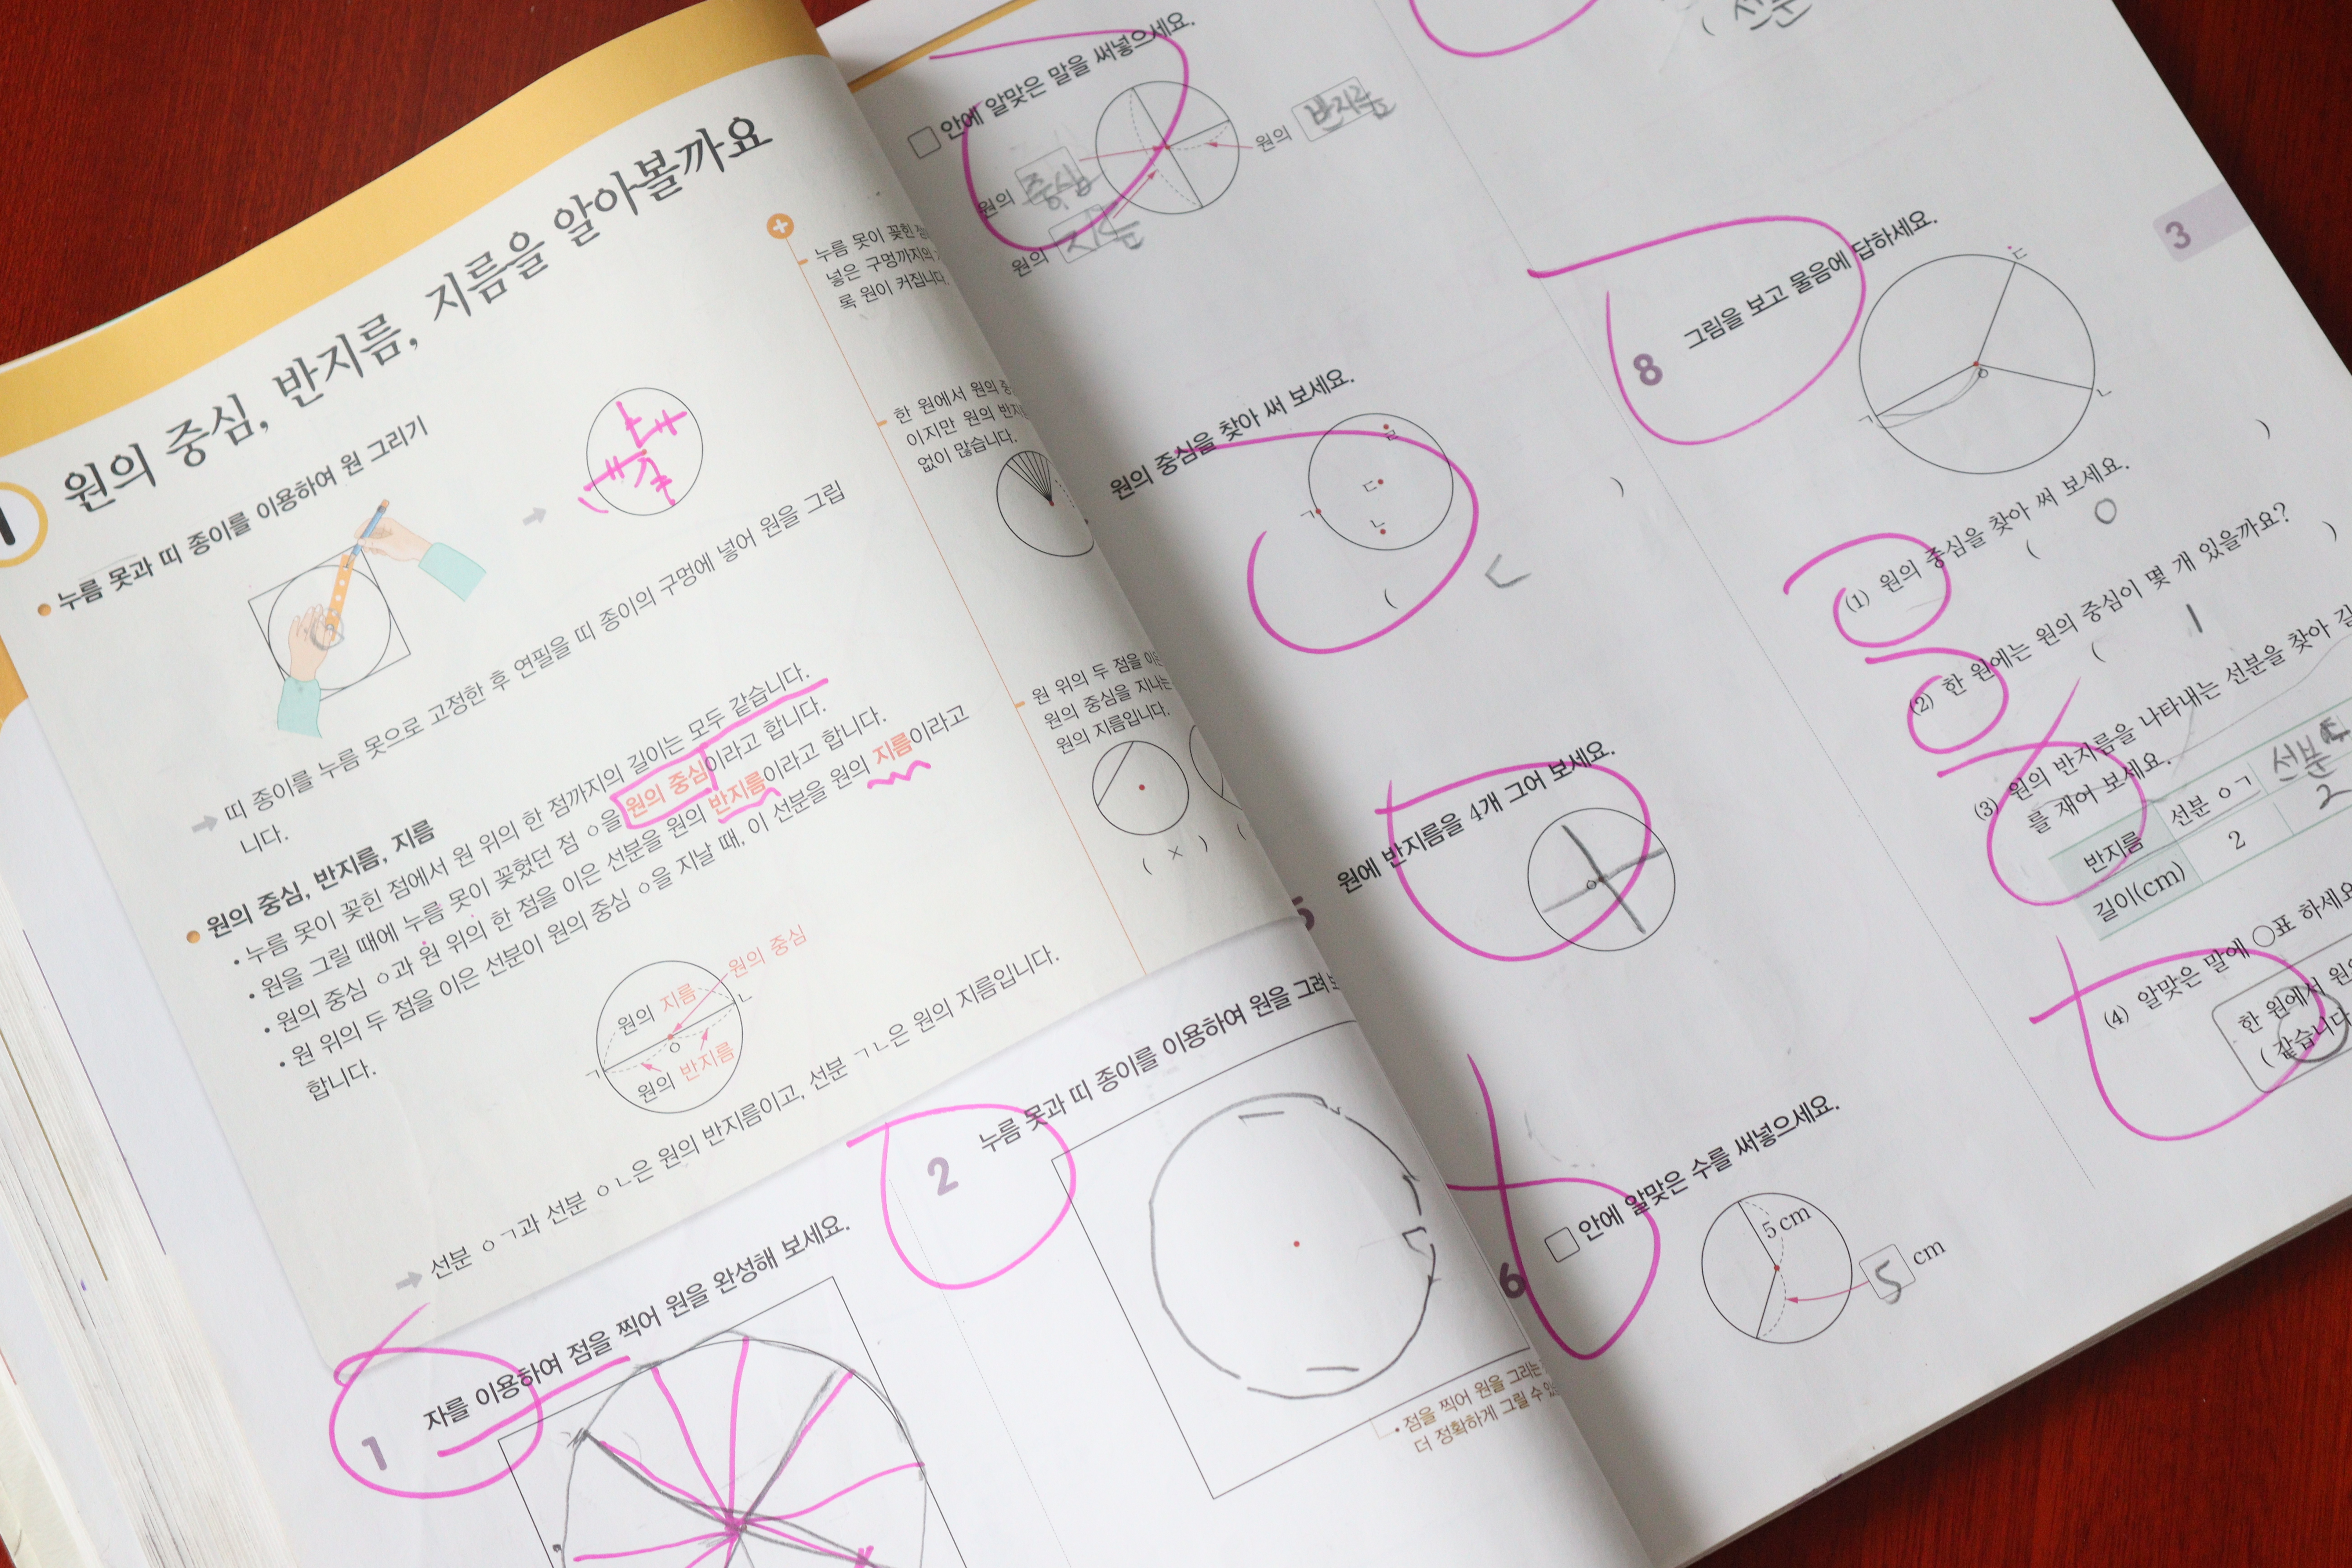 원의 중심, 반지름, 지름을 알아볼까요
누름 못과 띠 종이를 이용하여 원 그리기
띠 종이를 누름 못으로 고정한 후 연필을 띠 종이의 구멍에 넣어 원을 그립
니다.
원의 중심, 반지름, 지름
• 누름 못이 꽂힌 점에서 원 위의 한 점까지의 길이는 모두 같습니다.
• 원을 그릴 때에 누름 못이 꽂혔던 점 ㅇ을 원의 중심이라고 합니다.
• 원의 중심 ㅇ과 원 위의 한 점을 이은 선분을 원의 반지름이라고 합니다.
• 원 위의 두 점을 이은 선분이 원의 중심 ㅇ을 지날 때, 이 선분을 원의 지름이라고
합니다.
원의 중심
원의 지름
ㄴ
ㅇ
ㄱ
원의 반지름
선분 ㅇㄱ과 선분 ㅇㄴ은 원의 반지름이고, 선분 ㄱㄴ은 원의 지름입니다.
누름 못이 꽂힌
넣은 구멍까지의
록 원이 커집니다.
한 원에서 원의
이지만 원의
없이 많습니다.
원 위의 두 점을
원의 중심을 지나는
원의 지름입니다.
( × )
(
1
자를 이용하여 점을 찍어 원을 완성해 보세요.
2
누름 못과 띠 종이를 이용하여 원을 그려
• 점을 찍어 원을 그리는
더 정확하게 그릴 수
□ 안에 알맞은 말을 써넣으세요.
원의 반지름
원의 중심
원의 지름
원의 중심을 찾아 써 보세요.
ㄹ
ㄷ
ㄱ
ㄴ
( ㄷ )
5
원에 반지름을 4개 그어 보세요.
ㅇ
6
□ 안에 알맞은 수를 써넣으세요.
5 cm
5 cm
( 선분
3
8
그림을 보고 물음에 답하세요.
ㄷ
ㅇ
ㄴ
ㄱ
(1) 원의 중심을 찾아 써 보세요.
( ㅇ )
(2) 한 원에는 원의 중심이 몇 개 있을까요?
( 1 )
(3) 원의 반지름을 나타내는 선분을 찾아
를 재어 보세요.
반지름 선분 ㅇㄱ 선분
길이(cm) 2 2
(4) 알맞은 말에 ○표 하세요
한 원에서
( 같습니다